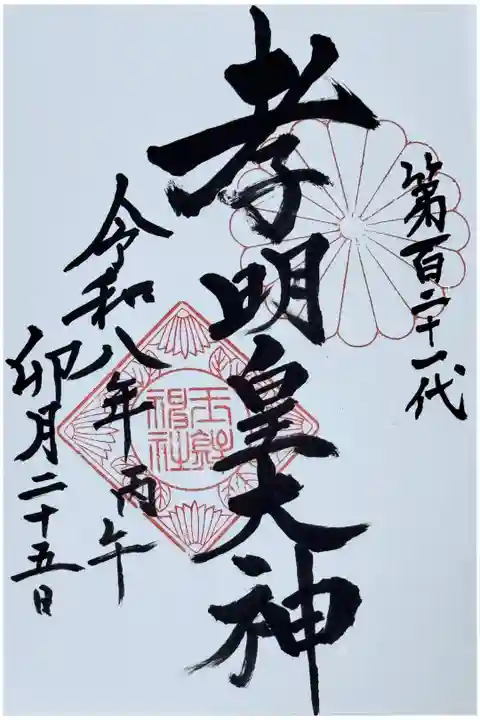 第百二十一代
孝明皇大神
玉鉾
神社
令和八年丙午
卯月二十五日